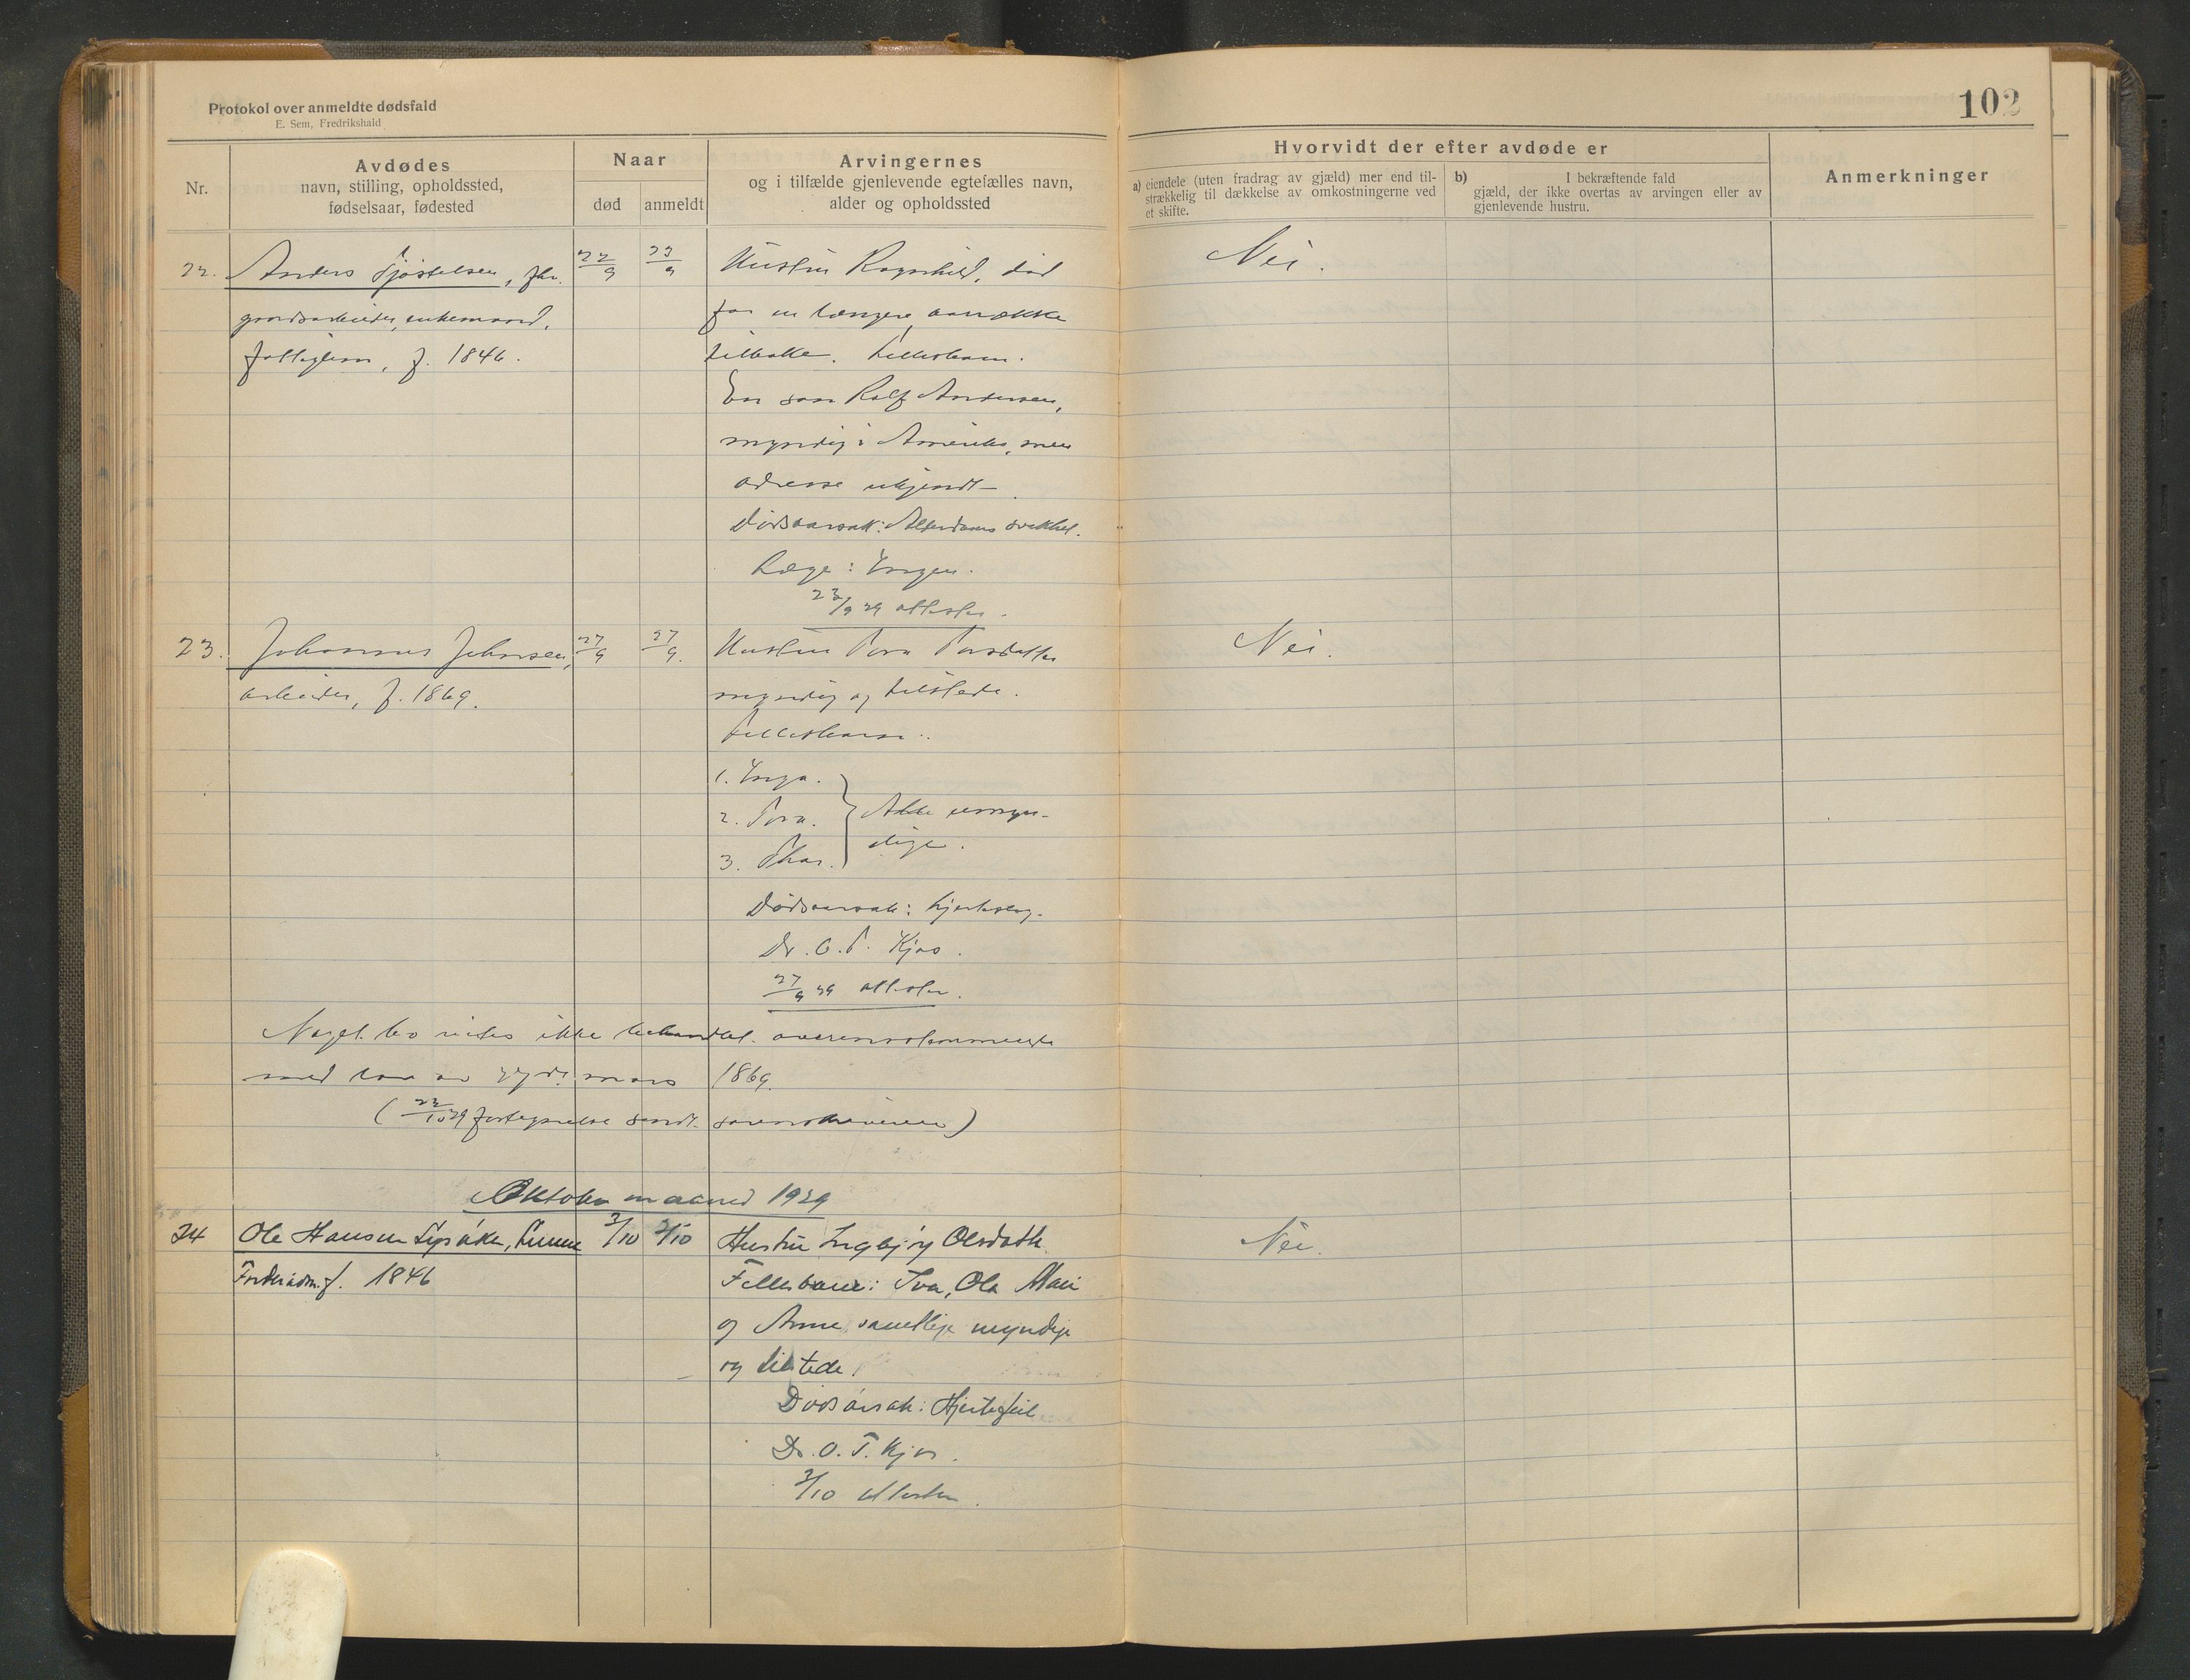 Protokol over anmeldte dødsfald
E. Sem, Fredrikshald
102
Nr.
Avdødes
navn, stilling, opholdssted,
fødselsaar, fødested
Naar
død
anmeldt
Arvingernes
og i tilfælde gjenlevende egtefælles navn,
alder og opholdssted
Hvorvidt der efter avdøde er
a) eiendele (uten fradrag av gjæld) mer end til-
strækkelig til dækkelse av omkostningerne ved
et skifte.
b) I bekræftende fald
gjæld, der ikke overtas av arvingen eller av
gjenlevende hustru.
Anmerkninger
22. Anders
gaardsarbeider, enkemand,
f. 1846.
22/9
23/9
Hustru Ragnhild, død
for en længere aarrække
tilbake. Fellesbarn.
En søn Rolf Andersen,
myndig i Amerika, men
adresse ukjendt
Dødsaarsak: Alderdoms svakhet.
Læge: Ingen.
23/9 29 attester.
Nei.
23. Johannes Johnsen,
arbeider, f. 1869.
27/9
27/9.
Hustru Tora
myndig og tilstede.
Fellesbarn:
1. Inga.
2. Tora.
3. Thor.
Alle umyn-
dige.
Dødsaarsak: hjerteslag.
Dr. O. T. Kjos.
27/9 29 attester.
Nei.
Noget bo vites ikke behandlet overensstemmende
med lov av 27de mars 1869.
(22/10 29 fortegnelse sendt sorenskriveren)
Oktober maaned 1929
24 Ole Hansen
f. 1846
2/10
2/10
Hustru Ingbjørg Olsdatter
Fellesbarn: Iva, Ola Mari
og Anne, samtlige myndige
og tilstede.
Dødsårsak: Hjertefeil
Dr. O. T. Kjos.
2/10 attester.
Nei.